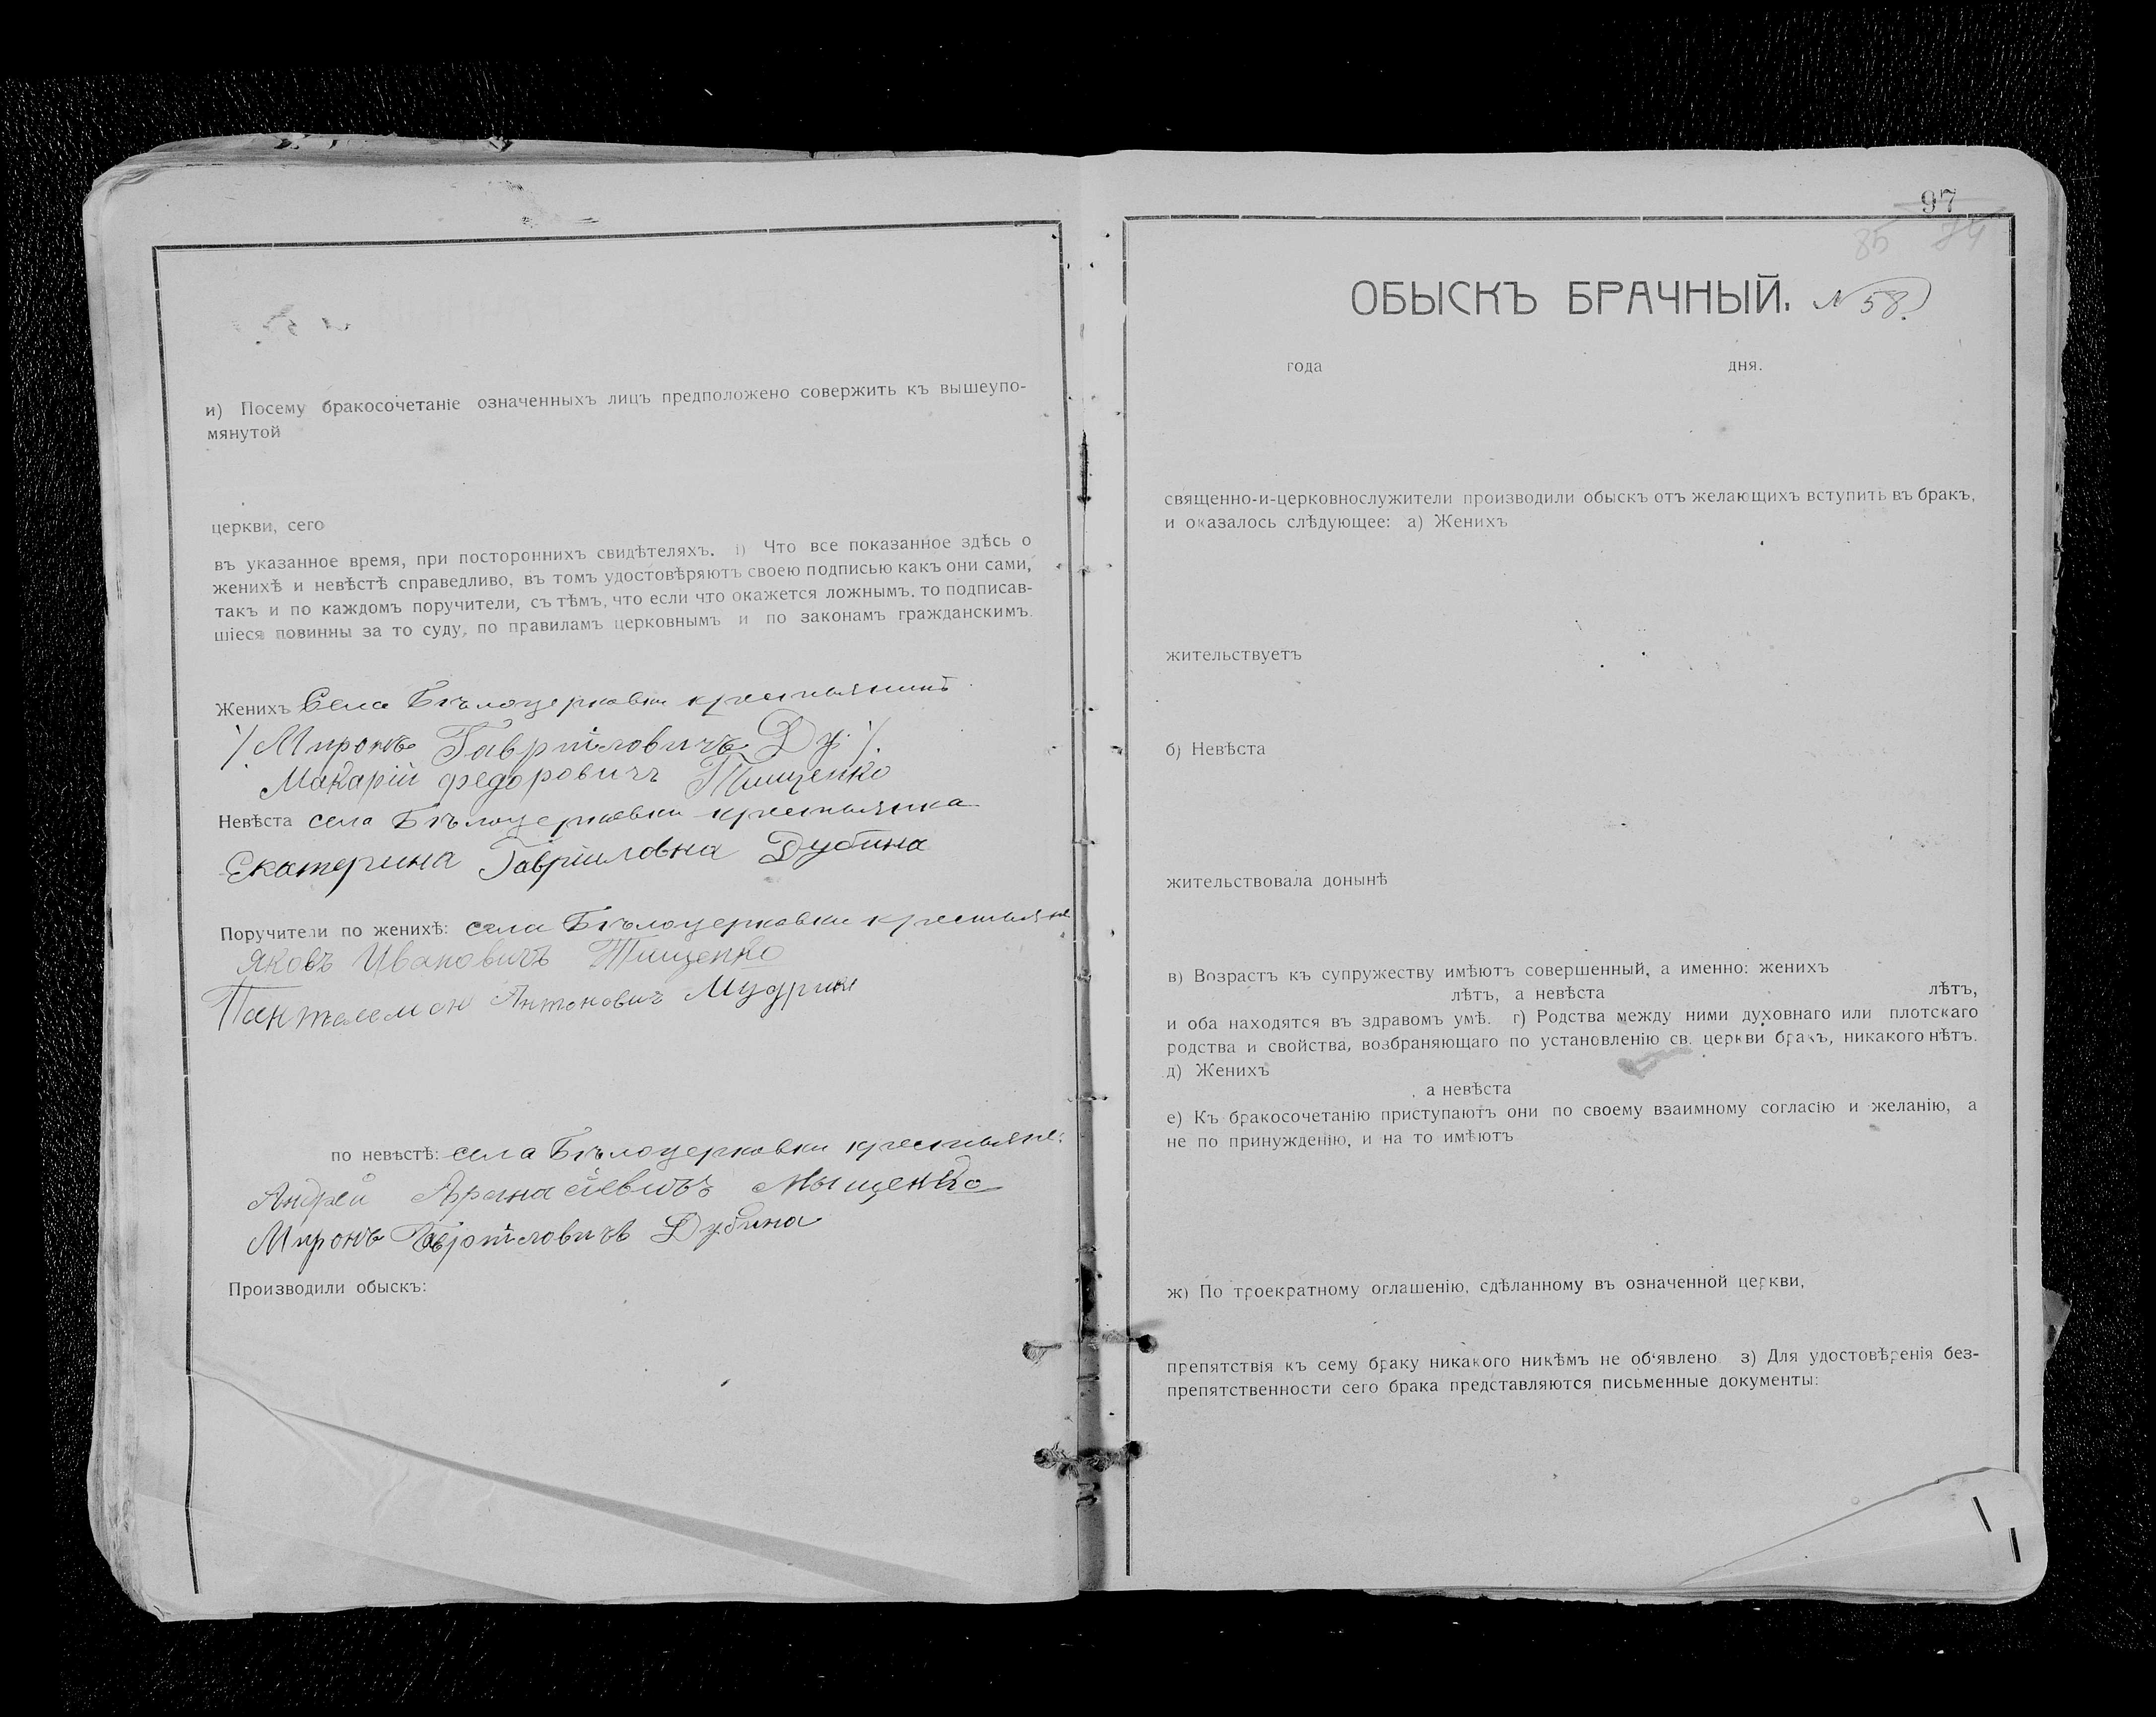 и) Посему бракосочетаніе означенныхъ лицъ предположено совержить къ вышеупо-
мянутой
церкви, сего
въ указанное время, при постороннихъ свидѣтеляхъ. і) Что все показанное здѣсь о
женихѣ и невѣстѣ справедливо, въ томъ удостовѣряютъ своею подписью какъ они сами,
такъ и по каждомъ поручители, съ тѣмъ, что если что окажется ложнымъ, то подписав-
шіеся повинны за то суду, по правиламъ церковнымъ и по законамъ гражданскимъ.
Женихъ Села Бѣлоцерковки крестьянинъ
Миронъ Гавріиловичъ Ду
Макарій Федоровичъ Тищенко
Невѣста села Бѣлоцерковки крестьянка
Екатерина Гавріиловна Дубина
Поручители по женихѣ: села Бѣлоцерковки крестьяне
Яковъ Ивановичъ Тищенко
Пантелемон Антонович
по невѣстѣ: села Бѣлоцерковки крестьяне:
Андрей Афанасіевичъ
Миронъ Гавріиловичъ Дубина
Производили обыскъ:
97
85 84
ОБЫСКЪ БРАЧНЫЙ. N 58
года дня.
священно-и-церковнослужители производили обыскъ отъ желающихъ вступить въ бракъ,
и оказалось слѣдующее: а) Женихъ
жительствуетъ
б) Невѣста
жительствовала донынѣ
в) Возрастъ къ супружеству имѣютъ совершенный, а именно: женихъ
лѣтъ, а невѣста лѣтъ,
и оба находятся въ здравомъ умѣ. г) Родства между ними духовнаго или плотскаго
родства и свойства, возбраняющаго по установленію св. церкви бракъ, никакого нѣтъ.
д) Женихъ
, а невѣста
е) Къ бракосочетанію приступаютъ они по своему взаимному согласію и желанію, а
не по принужденію, и на то имѣютъ
ж) По троекратному оглашенію, сдѣланному въ означенной церкви,
препятствія къ сему браку никакого никѣмъ не об‘явлено. з) Для удостовѣренія без-
препятственности сего брака представляются письменные документы: